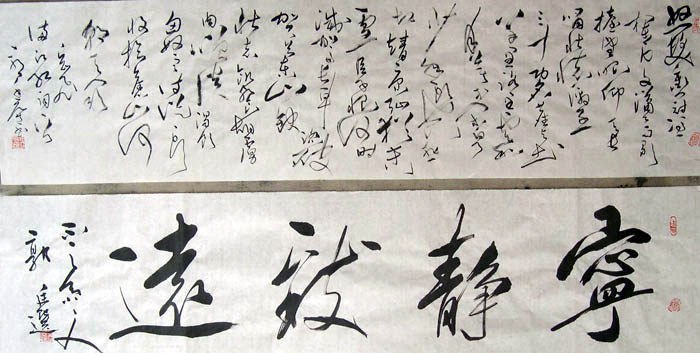 怒髮衝冠憑
擡望眼仰天長
嘯壯懷激烈
三十功名塵與土
八千里路雲和
月莫等閑白了
少年頭空悲
切靖康恥猶未
雪臣子恨何時
滅駕長車踏破
賀蘭山缺
壯志飢餐胡虜
肉笑談渴飲
匈奴血待從頭
收拾舊山河
朝天闕
岳飛
滿江紅詞
寧靜致遠